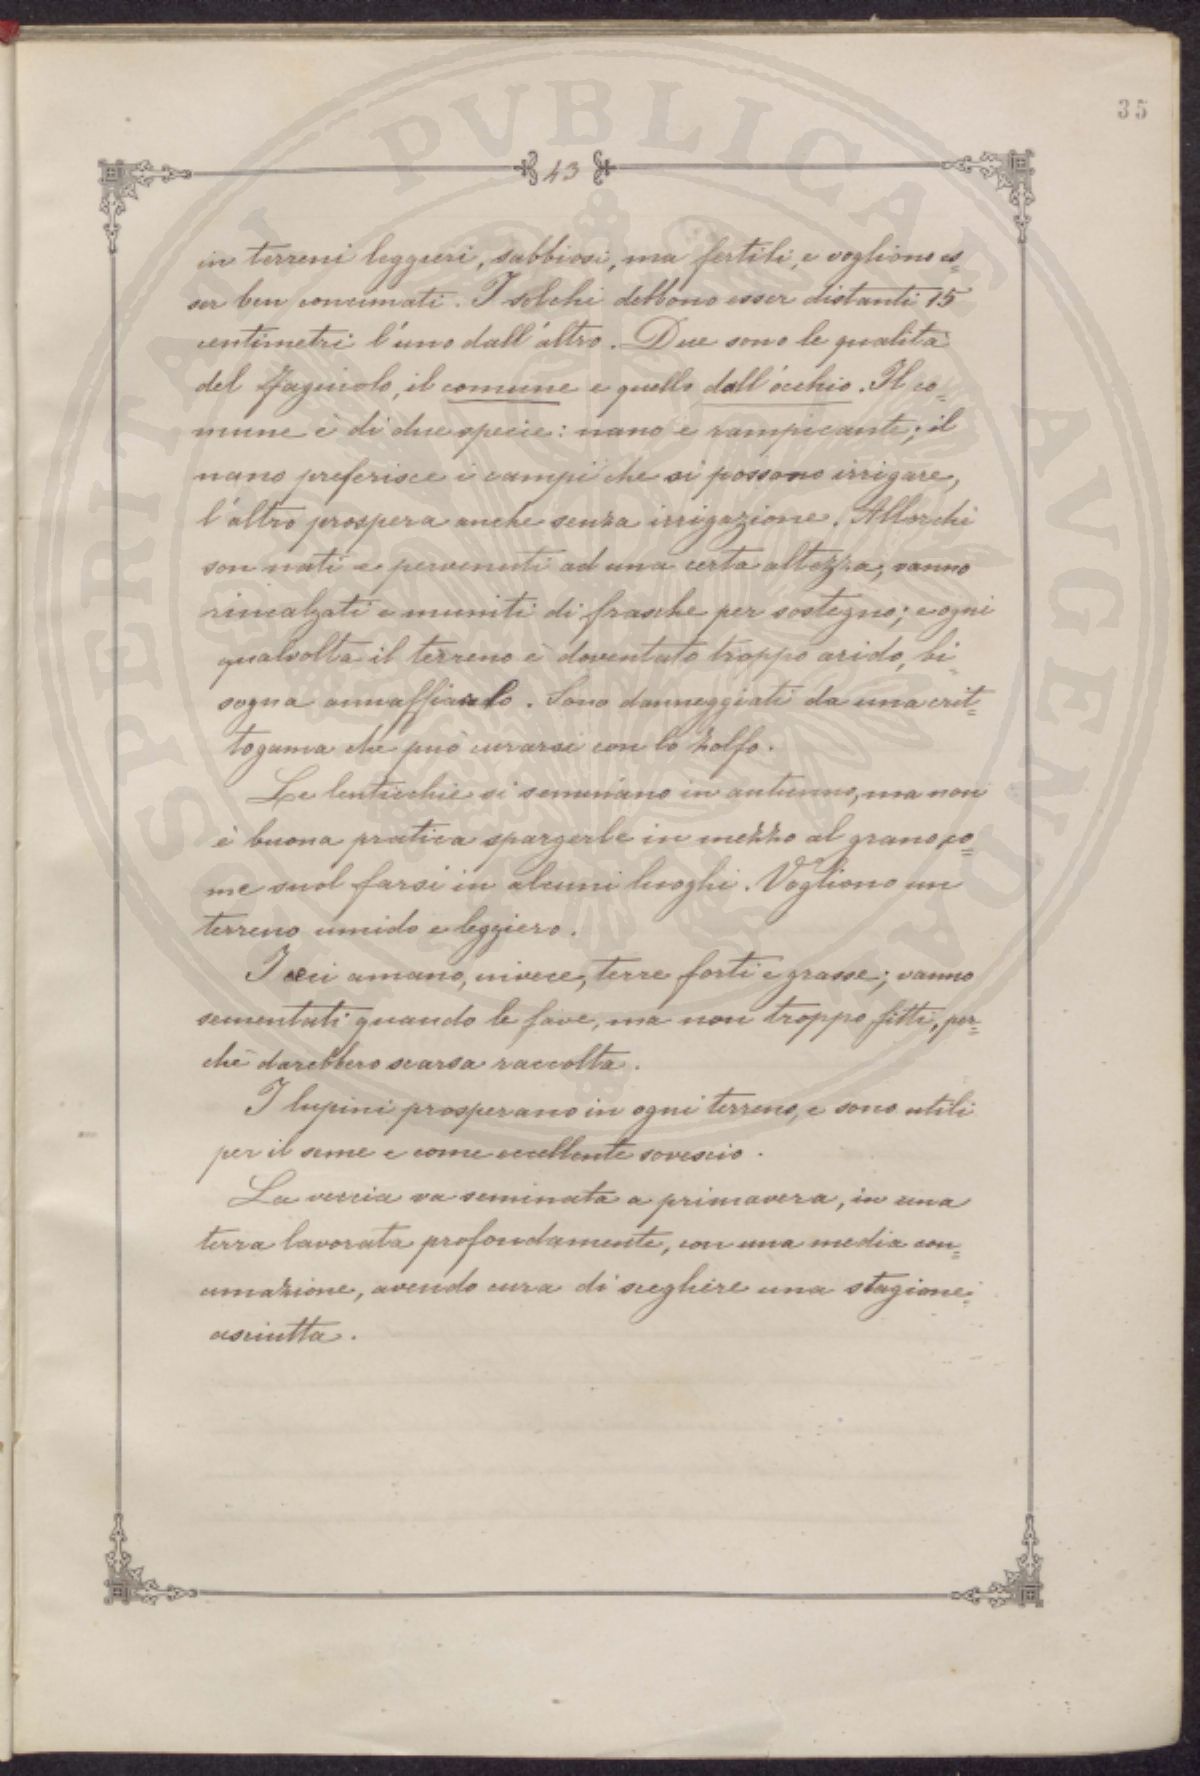 35
43
in terreni leggieri, sabbiosi, ma fertili, e vogliono es=
ser ben concimati. I solchi debbono esser distanti 15
centimetri l'uno dall'altro. Due sono le qualità
del fagiuolo, il comune e quello dall'occhio. Il co=
mune è di due specie: nano e rampicante; il
nano preferisce i campi che si possono irrigare,
l'altro prospera anche senza irrigazione. Allorchè
son nati e pervenuti ad una certa altezza, vanno
rincalzati e muniti di frasche per sostegno; e ogni
qualvolta il terreno è doventato troppo arido, bi=
sogna annaffiarlo. Sono danneggiati da una crit=
togama che può curarsi con lo zolfo.
Le lenticchie si seminano in autunno, ma non
è buona pratica spargerle in mezzo al grano co=
me suol farsi in alcuni luoghi. Vogliono un
terreno umido e leggiero.
I ceci amano, invece, terre forti e grasse; vanno
sementati quando le fave, ma non troppo fitti, per=
chè darebbero scarsa raccolta.
I lupini prosperano in ogni terreno, e sono utili
per il seme e come eccellente sovescio.
La veccia va seminata a primavera, in una
terra lavorata profondamente, con una media con=
cimazione, avendo cura di scegliere una stagione
asciutta.
PROSPERITATI PVBLICAE AVGENDAE